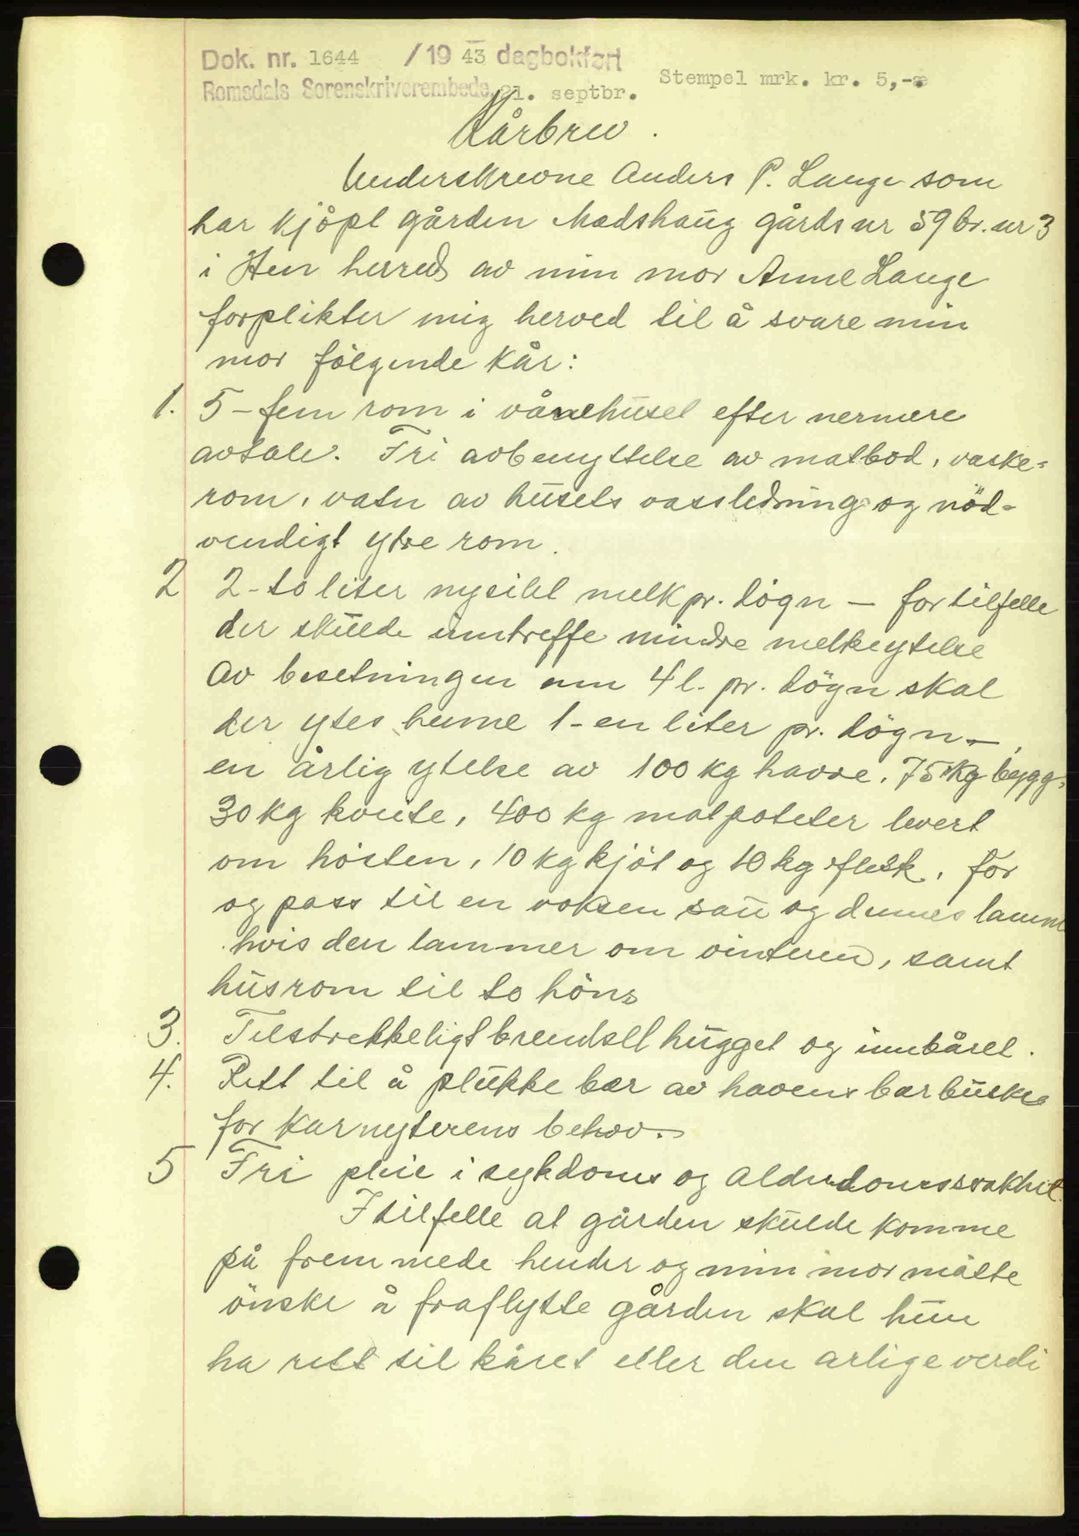 Dok. nr. 1644 / 19 43 dagbokført
Stempel mrk. kr. 5,-
Romsdals Sorenskriverembede, 21. septbr.
Kårbrev.
Underskrevne Anders P. Lange som
har kjöpt gården Madshaug gårdsnr 59 br.nr 3
i Hen herred av min mor Anne Lange
forplikter mig herved til å svare min
mor fölgende kår:
1. 5 - fem rom i vånehuset efter nermere
avtale. Fri avbenyttelse av matbod, vaske-
rom, vatn av husets vassledning og nöd-
vendigt ytre rom.
2 2 - to liter nysilt melk pr. dögn - for tilfelle
der skulde inntreffe mindre melkeytelse
av besetningen enn 4 l. pr. dögn skal
der ytes henne 1 - en liter pr. dögn -,
en årlig ytelse av 100 kg havre, 75 kg bygg,
30 kg kveite, 400 kg matpoteter levert
om hösten, 10 kg kjöt og 10 kg flesk, för
og pass til en voksen sau og dennes lamm
hvis den lammer om vinteren, samt
husrom til to höns
3. Tilstrekkeligt brendsel hugget og innbåret.
4. Rett til å plukke bær av havens bærbuske
for kårnyterens behov.
5 Fri pleie i sykdoms og alderdomssvakhet.
I tilfelle at gården skulde komme
på fremmede hender og min mor måtte
önske å fraflytte gården skal hun
ha rett til kåret eller den årlige verdi